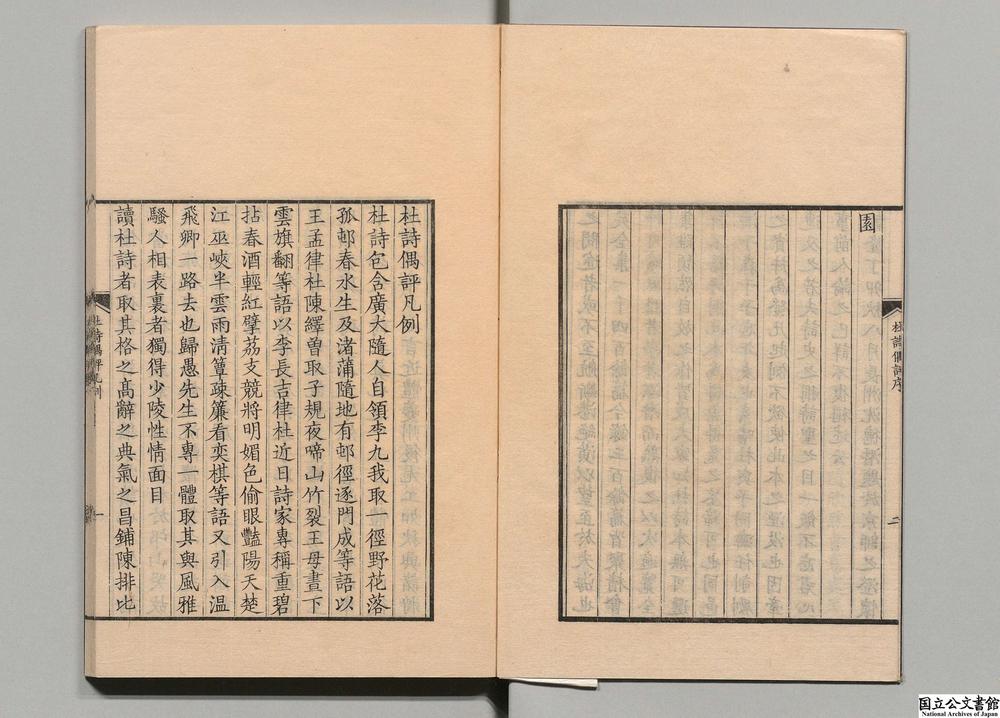 園
杜詩偶評序
二
杜詩偶評凡例
杜詩包含廣大隨人自領李九我取一徑野花落
孤邨春水生及渚蒲隨地有邨徑逐門成等語以
王孟律杜陳繹曾取子規夜啼山竹裂王母晝下
雲旗翻等語以李長吉律杜近日詩家專稱重碧
拈春酒輕紅擘荔支競將明媚色偷眼豔陽天楚
江巫峽半雲雨清簟疎簾看奕棋等語又引入溫
飛卿一路去也歸愚先生不專一體取其與風雅
騷人相表裏者獨得少陵性情面目
讀杜詩者取其格之髙辭之典氣之昌鋪陳排比
杜詩偶評凡例
一
国立公文書館
National Archives of Japan